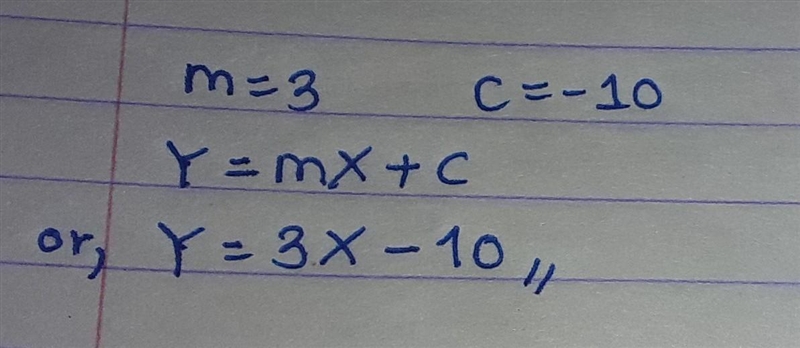 m = 3 c = -10
Y = mX + c
or, Y = 3X - 10 //